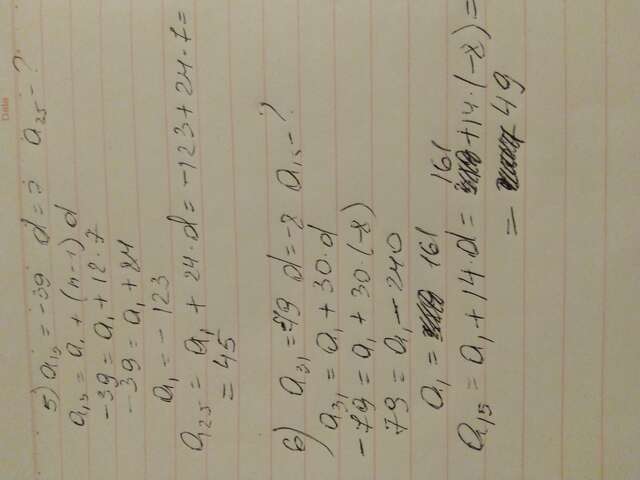 Data
5) a₁₃ = -39 d = 7 a₂₅ - ?
a₁₃ = a₁ + (n-1) d
-39 = a₁ + 12 · 7
-39 = a₁ + 84
a₁ = -123
a₂₅ = a₁ + 24 · d = -123 + 24 · 7 =
= 45
6) a₃₁ = -79 d = -8 a₁₅ - ?
a₃₁ = a₁ + 30 · d
-79 = a₁ + 30 · (-8)
79 = a₁ - 240
a₁ = 161
a₁₅ = a₁ + 14 · d = 161 + 14 · (-8) =
= 49